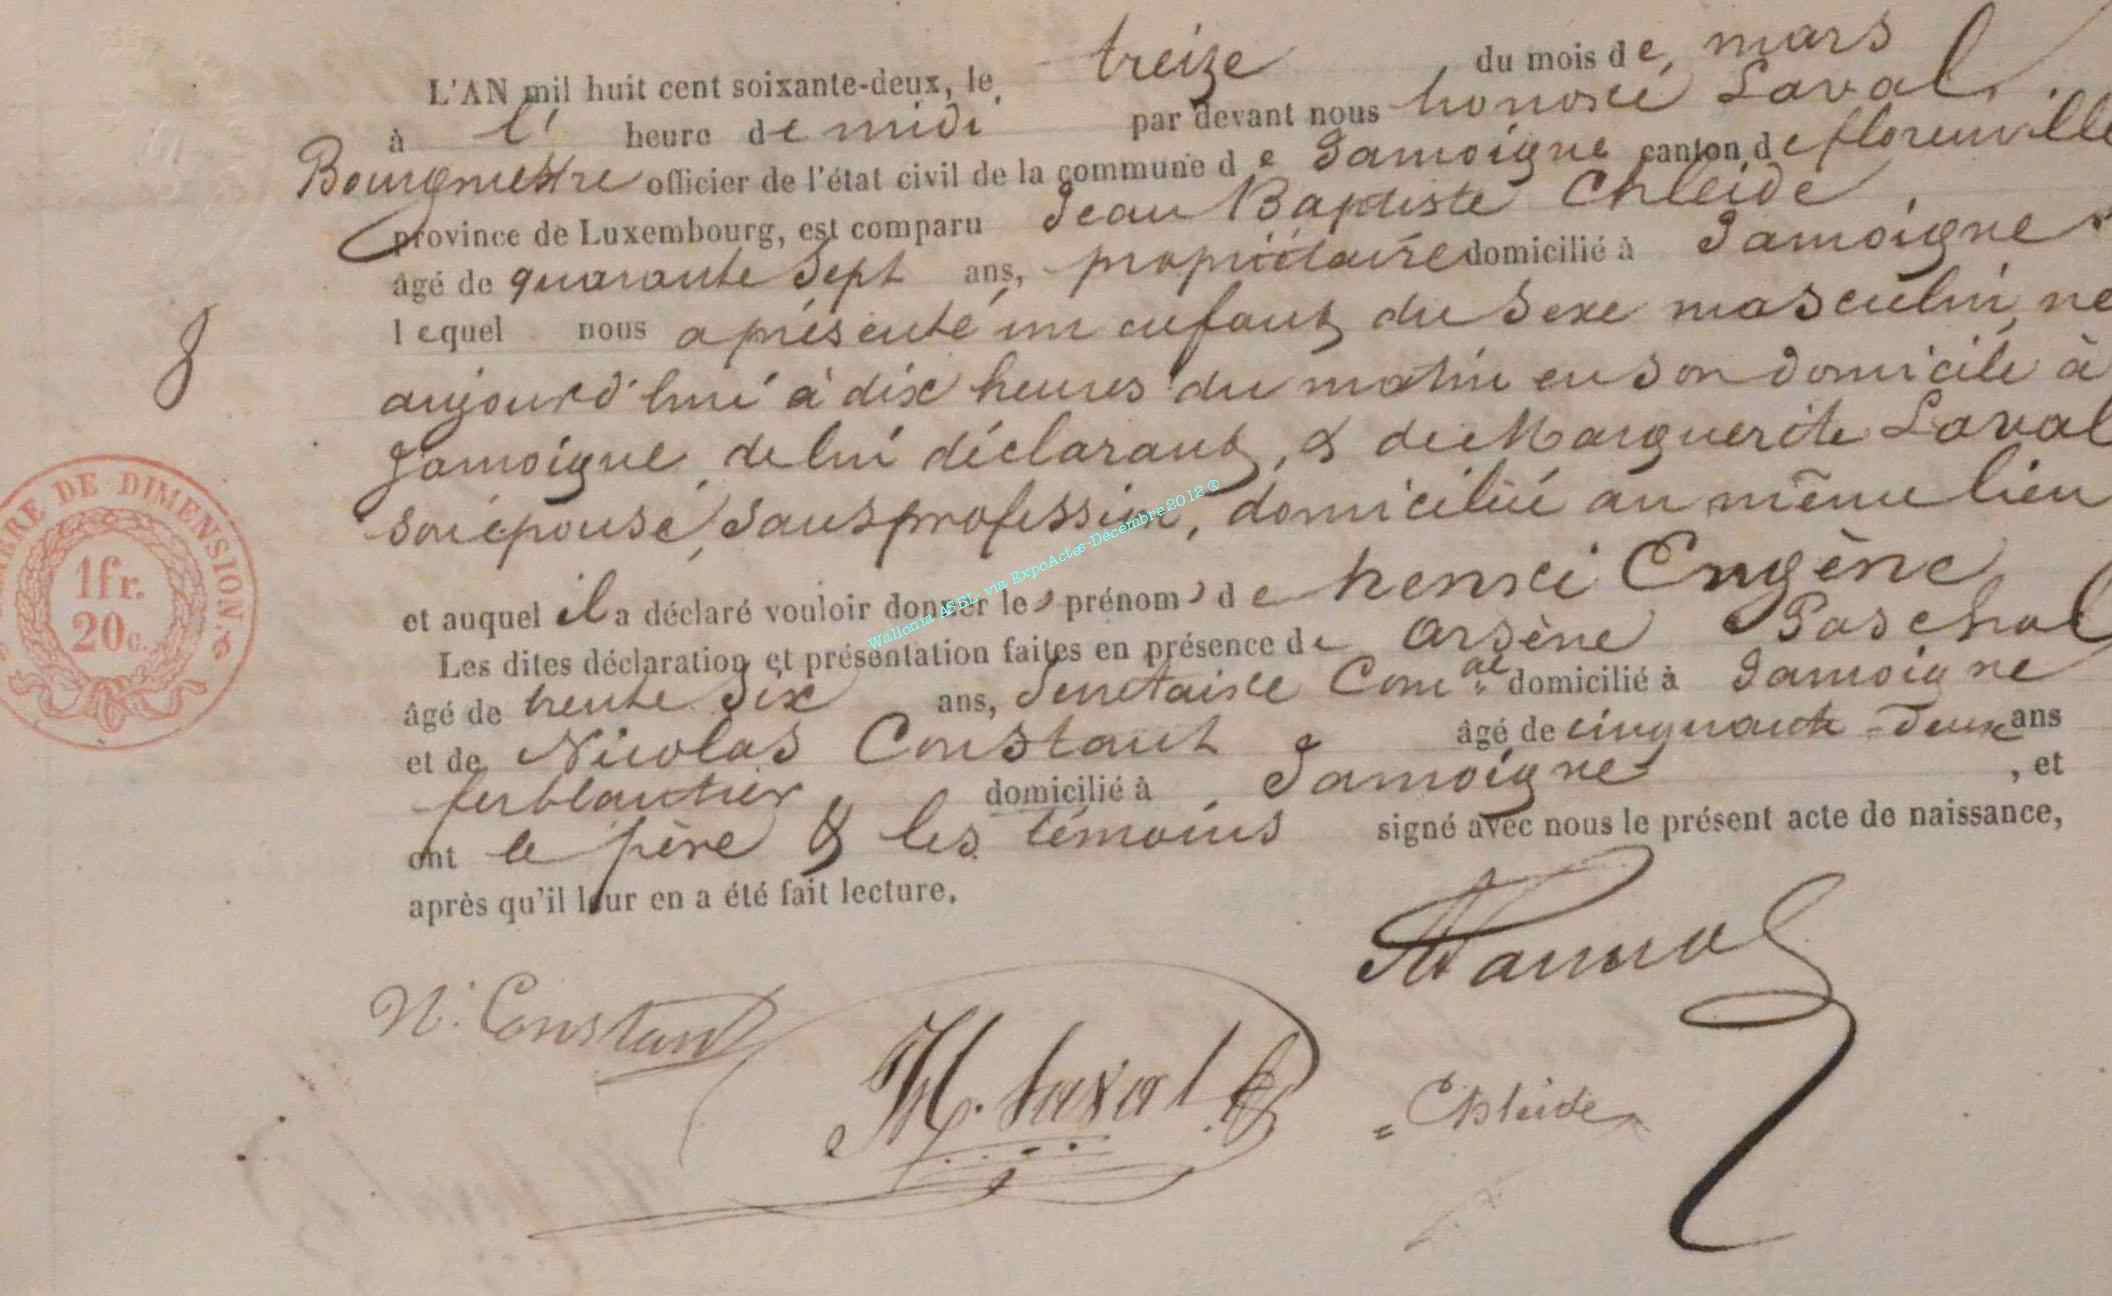 L'AN mil huit cent soixante-deux, le treize du mois de mars
à l' heure de midi par devant nous honoré Laval
Bourgmestre officier de l'état civil de la commune de Jamoigne canton de florenville
province de Luxembourg, est comparu Jean Baptiste Chleide
âgé de quarante Sept ans, propriétaire domicilié à Jamoigne
lequel nous a présenté un enfant du Sexe masculin, né
aujourd'hui à dix heures du matin en son domicile à
Jamoigne de lui déclarant, & de Marguerite Laval
son épouse, Sans profession, domiciliée au même lieu
et auquel il a déclaré vouloir donner les prénoms de henri Eugène
Les dites déclaration et présentation faites en présence de Arsène Paschal
âgé de trente Six ans, Secrétaire Com.al domicilié à Jamoigne
et de Nicolas Constant âgé de cinquante-deux ans
ferblantier domicilié à Jamoigne, et
ont le père & les témoins signé avec nous le présent acte de naissance,
après qu'il leur en a été fait lecture.
N. Constant
H. Laval
Chleide
8
TIMBRE DE DIMENSION.
1fr.
20c.
Wallonia ASBL via ExpoActes-Décembre 2012 ®